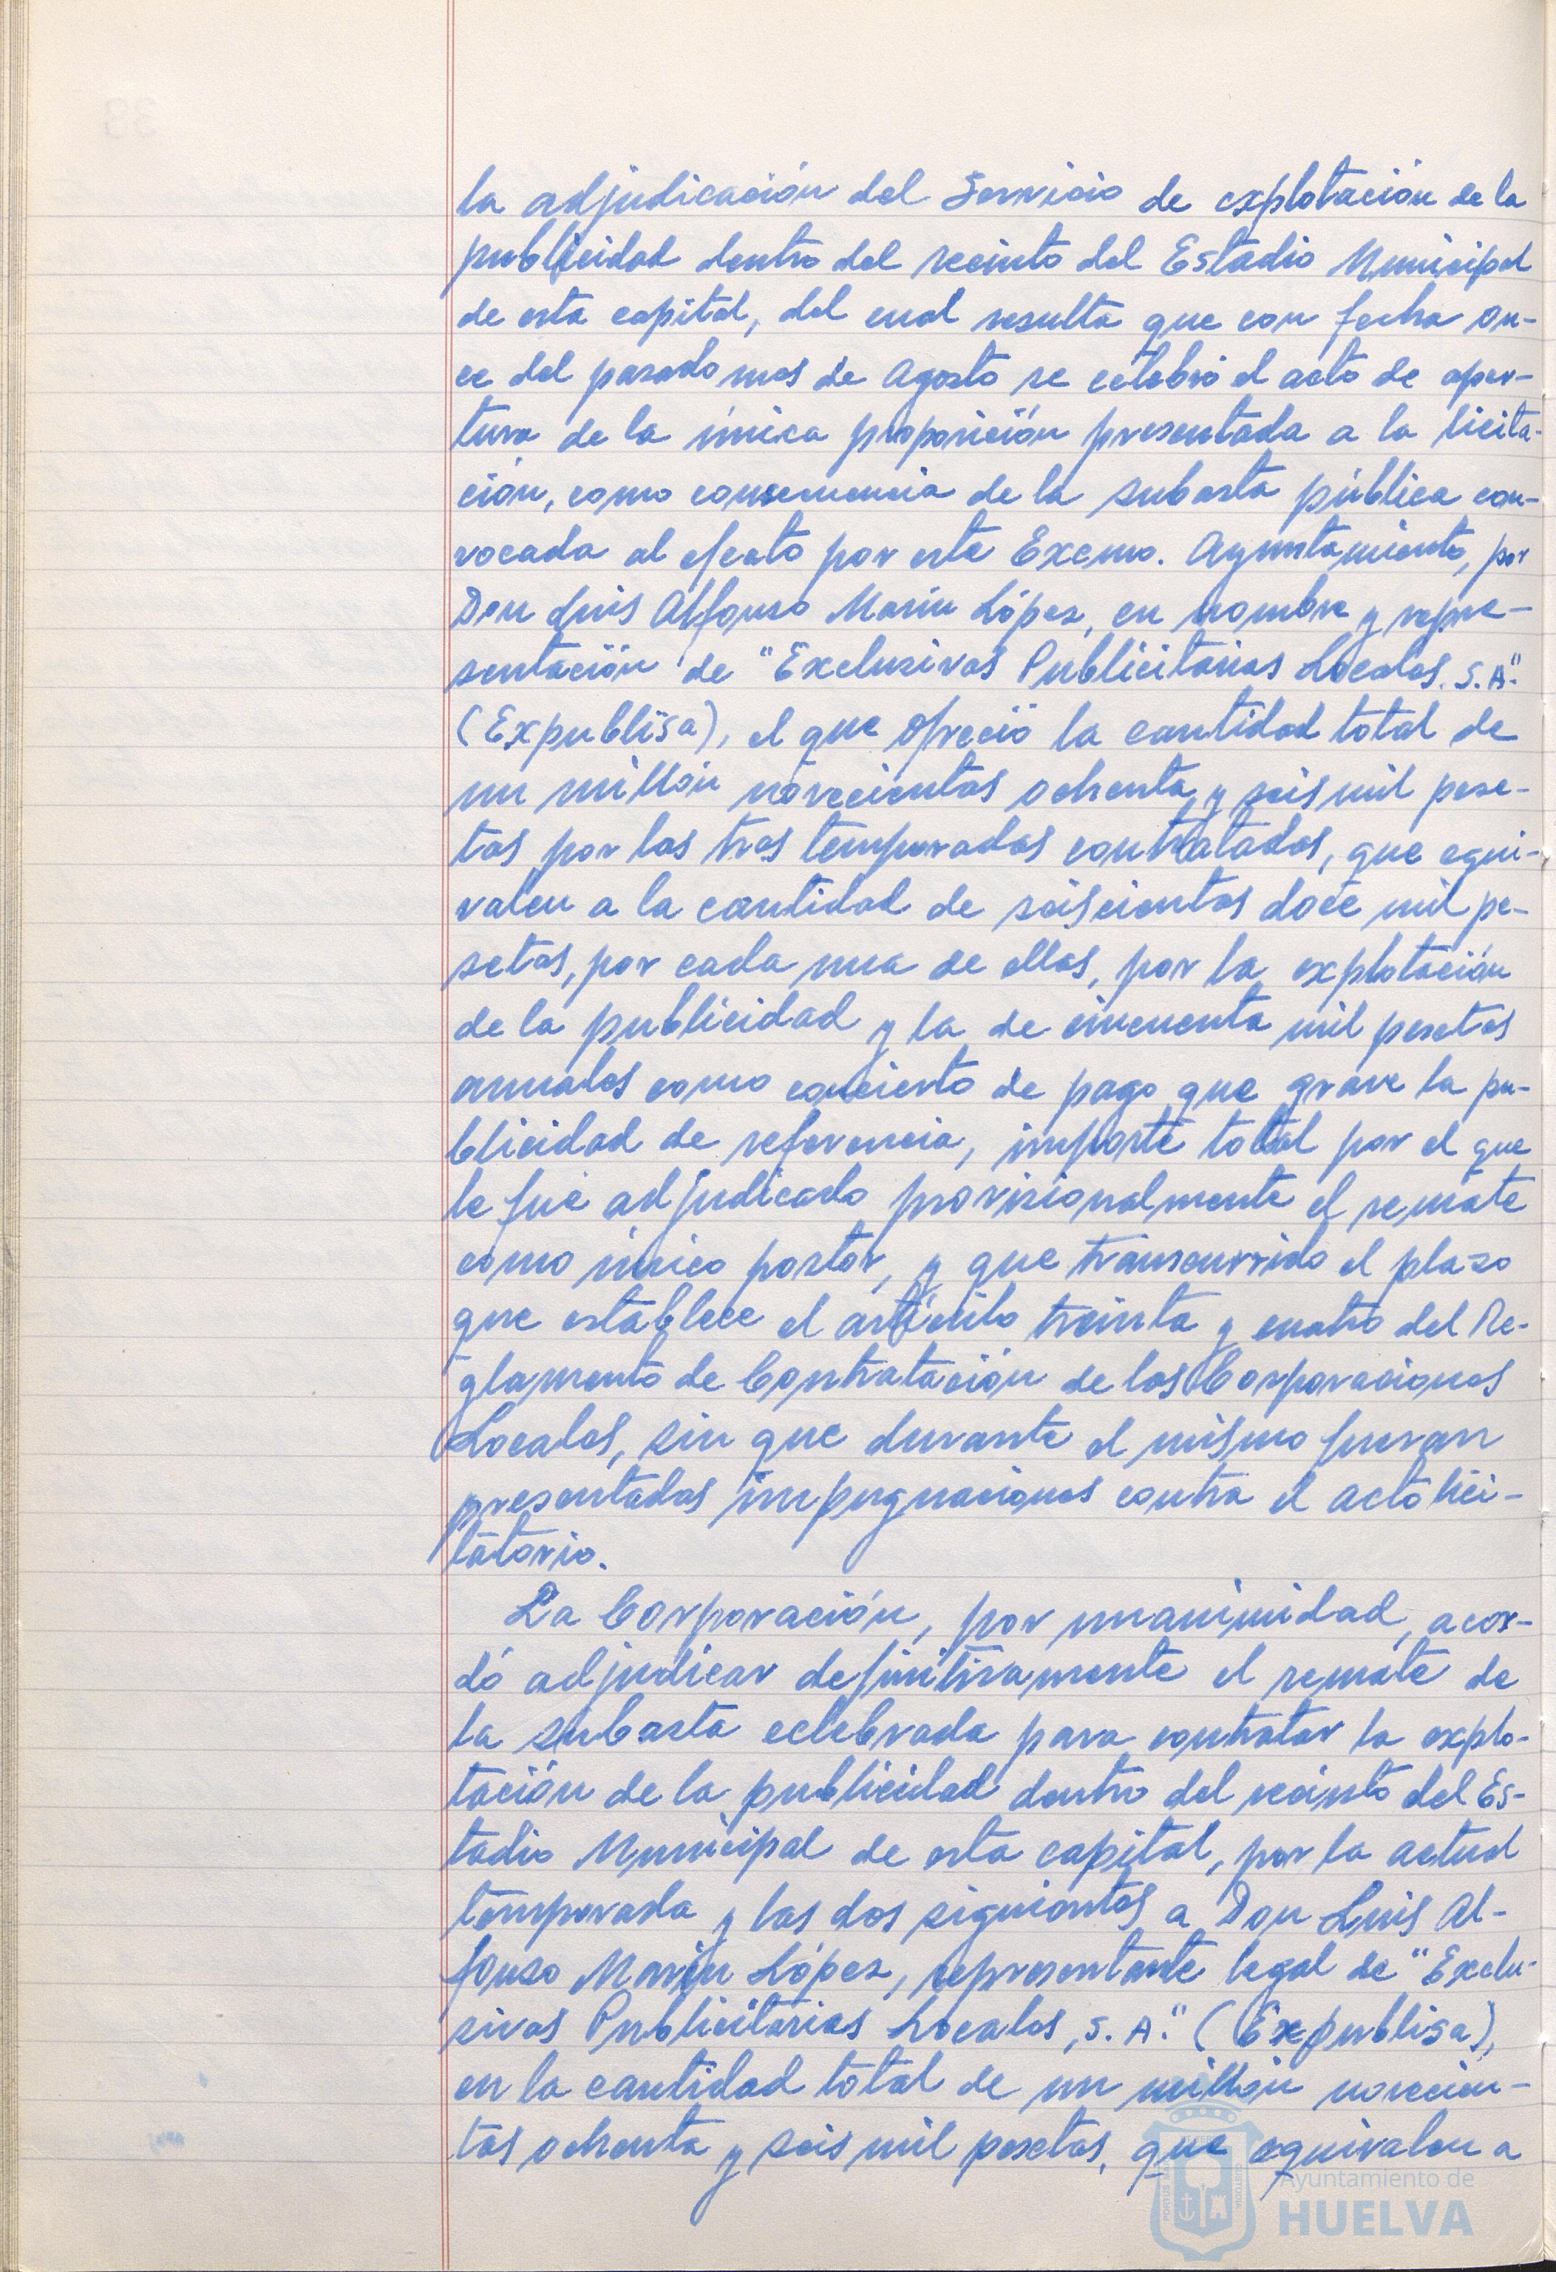 la adjudicación del Servicio de explotación de la
publicidad dentro del recinto del Estadio Municipal
de esta capital, del cual resulta que con fecha on-
ce del pasado mes de Agosto se celebró el acto de aper-
tura de la única proposición presentada a la licita-
ción, como consecuencia de la subasta pública con-
vocada al efecto por este Excmo. Ayuntamiento, por
Don Luis Alfonso Marín López, en nombre y repre-
sentación de "Exclusivas Publicitarias Locales, S.A."
(Expublisa), el que ofreció la cantidad total de
un millón novecientas ochenta y seis mil pese-
tas por las tres temporadas contratadas, que equi-
valen a la cantidad de seiscientas doce mil pe-
setas, por cada una de ellas, por la explotación
de la publicidad y la de cincuenta mil pesetas
anuales como concierto de pago que grave la pu-
blicidad de referencia, importe total por el que
le fué adjudicado provisionalmente el remate
como único postor, y que transcurrido el plazo
que establece el artículo treinta y cuatro del Re-
glamento de Contratación de las Corporaciones
Locales, sin que durante el mismo fueran
presentadas impugnaciones contra el acto lici-
tatorio.
La Corporación, por unanimidad, acor-
dó adjudicar definitivamente el remate de
la subasta celebrada para contratar la explo-
tación de la publicidad dentro del recinto del Es-
tadio Municipal de esta capital, por la actual
temporada y las dos siguientes a Don Luis Al-
fonso Marín López, representante legal de "Exclu-
sivas Publicitarias Locales, S.A." (Expublisa),
en la cantidad total de un millón novecien-
tas ochenta y seis mil pesetas, que equivalen a
Ayuntamiento de
HUELVA